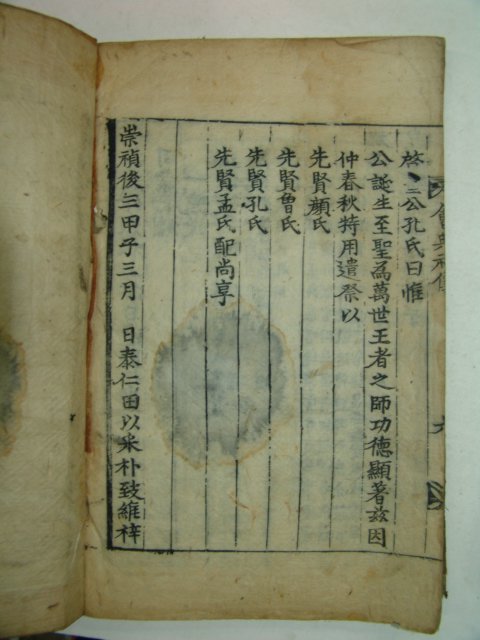 啓〻三公孔氏曰惟
公誕生至聖爲萬世王者之師功德顯著玆因
仲春秋特用遣祭以
先賢顔氏
先賢曾氏
先賢孔氏
先賢孟氏配尚享
崇禎後三甲子三月 日泰仁田以采朴致維梓